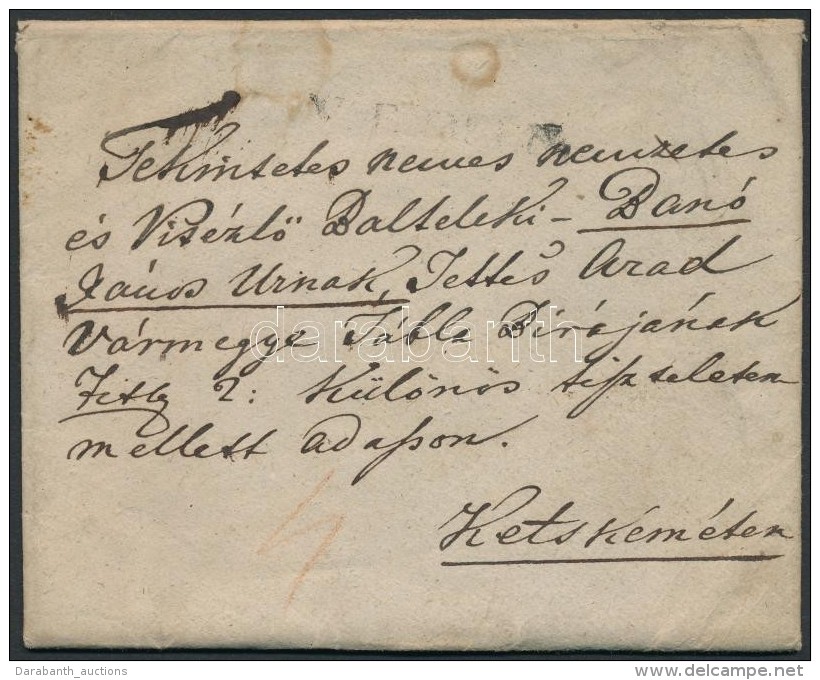 Tekintetes nemes nemzetes
és Vitézlő Balteleki – Banó
János Urnak, Tettes Arad
Vármegye Tábla Birájának
különös tiszteletem
mellett adasson.
Ketskéméten
darabanth
Darabanth_auctions
delcampe.net